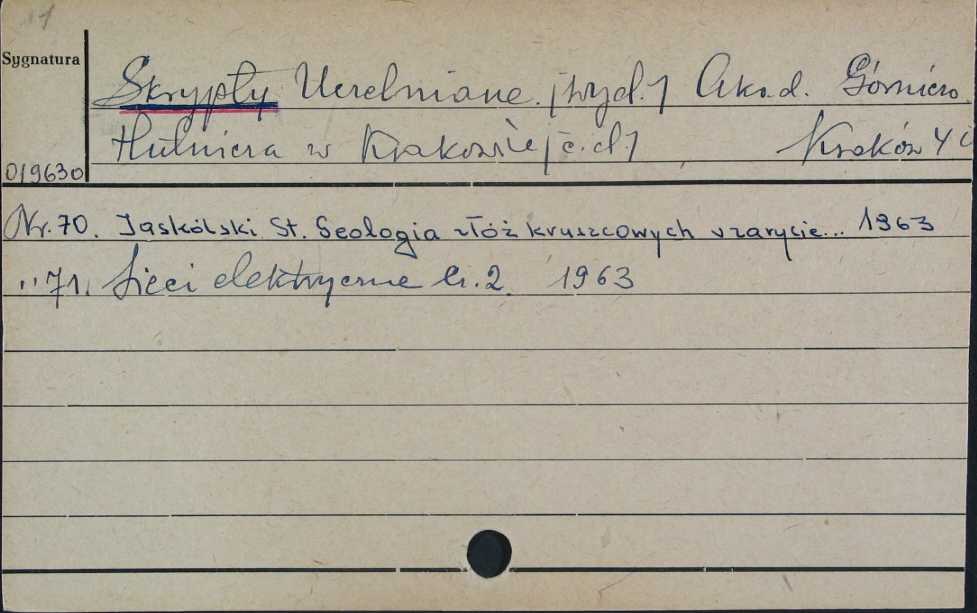 Sygnatura
Skrypty Uczelniane /wyd./ Akad. Górniczo
Hutnicza w Krakowie /c.d./ Kraków 4°
019630
Nr. 70. Jaskólski St. Geologia złóż kruszcowych w zarysie... 1963
" 71. Sieci elektryczne cz. 2. 1963